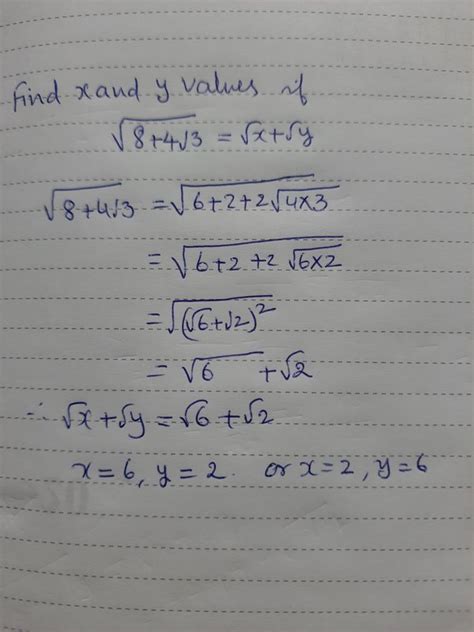 Find x and y values if
√8+4√3 = √x+√y
√8+4√3 = √6+2+2√4×3
= √6+2+2√6×2
= √(√6+√2)²
= √6 +√2
∴ √x+√y = √6+√2
x=6, y=2. or x=2, y=6